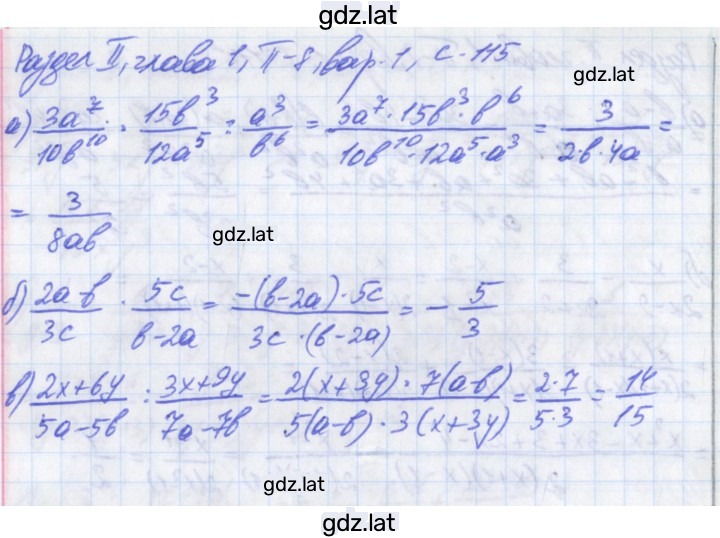 gdz.lat
Раздел II, глава 1, П-8, вар. 1, с. 115
gdz.lat
а) 3a^7/10b^10 · 15b^3/12a^5 : a^3/b^6 = 3a^7·15b^3·b^6/10b^10·12a^5·a^3 = 3/2·b·4a =
= 3/8ab
gdz.lat
б) 2a-b/3c · 5c/b-2a = -(b-2a)·5c/3c·(b-2a) = - 5/3
в) 2x+6y/5a-5b : 3x+9y/7a-7b = 2(x+3y)·7(a-b)/5(a-b)·3(x+3y) = 2·7/5·3 = 14/15
gdz.lat
gdz.lat